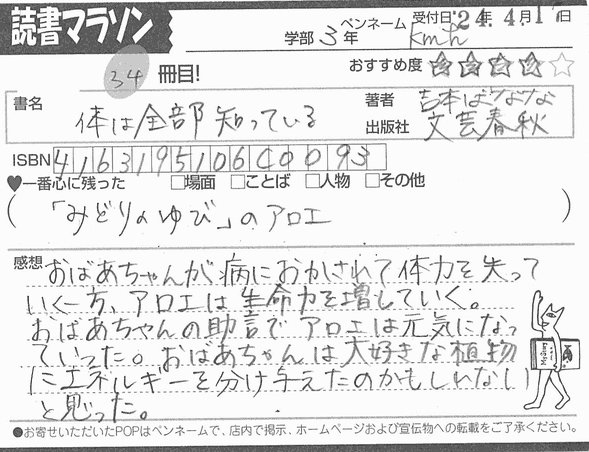 読書マラソン
学部 3年 ペンネーム kmth 受付日'24年4月17日
34 冊目!
おすすめ度 ★★★★☆
書名 体は全部知っている
著者 吉本ばなな
出版社 文芸春秋
ISBN
♥一番心に残った □場面 □ことば □人物 □その他
(「みどりのゆび」のアロエ)
感想 おばあちゃんが病におかされて体力を失って
いく一方、アロエは生命力を増していく。
おばあちゃんの助言でアロエは元気になっ
ていった。おばあちゃんは大好きな植物
にエネルギーを分け与えたのかもしれない
と思った。
●お寄せいただいたPOPはペンネームで、店内で掲示、ホームページおよび宣伝物への転載をご了承ください。